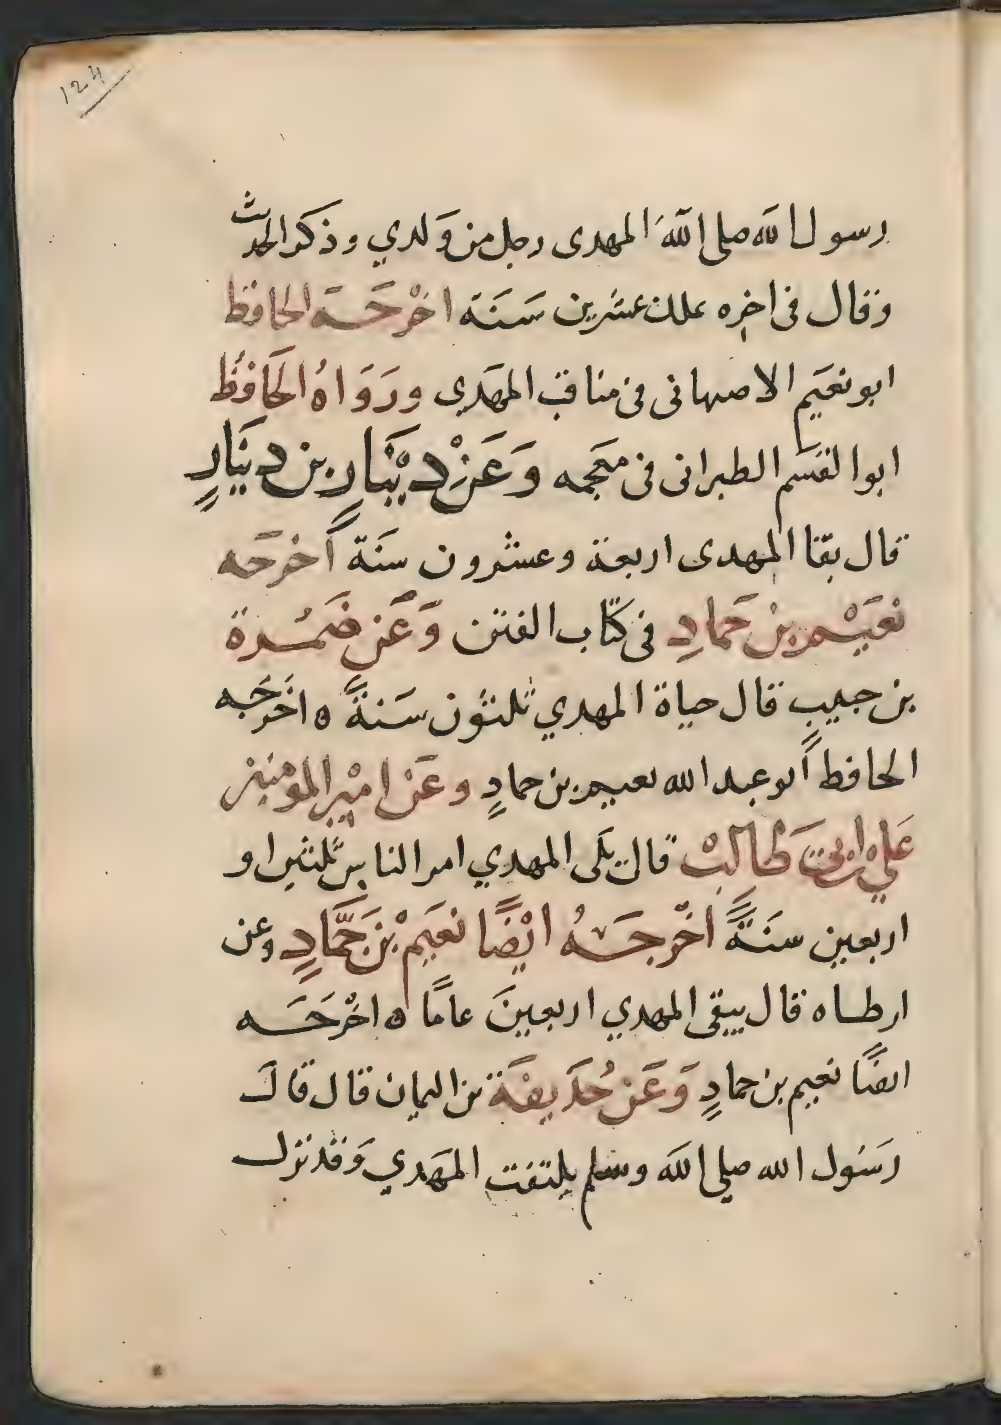 124
رسول الله صلى الله المهدى رجل من وَلدي وذكر الحديث
وقال فى اخره يملك عشرين سَنَة اخْرَجَهَ الحافظ
ابو نعَيَم الاصبهانى فى مناقب المهَدِي ورَوَاهُ الحَافظُ
ابوا لقسَم الطبرانى فى معَجمه وَعَنْ دِيْنَارِ بن دينَارٍ
قال بقا المهدى اربعة وعشرون سنَة أخرجَه
نعَيْم بن حَمادِ فى كتاب الفتن وَعَن ضَمُرة
بن حبيبٍ قال حياة المهدي ثلثون سَنةً ه اخَرجَه
الحافظ أبو عبد الله نعيم بن حمادٍ وعَن امْير المؤمنين
عَلي ابن ابى طَالبْ قال يَلى المهدي امر الناس ثلثين او
اربعين سنَةً اخْرجَهُ ايْضًا نعَيم بْن حَمَّادٍ وعن
ارطاه قال يبقى المهدي اربعينَ عامًا ه اخْرَجَه
ايضًا نعيم بن حمادٍ وَعَن حُذَيفَة بن اليمان قال قالَ
رسَول الله صلى الله وسلم يلتفت المهَدي وَقد نزل